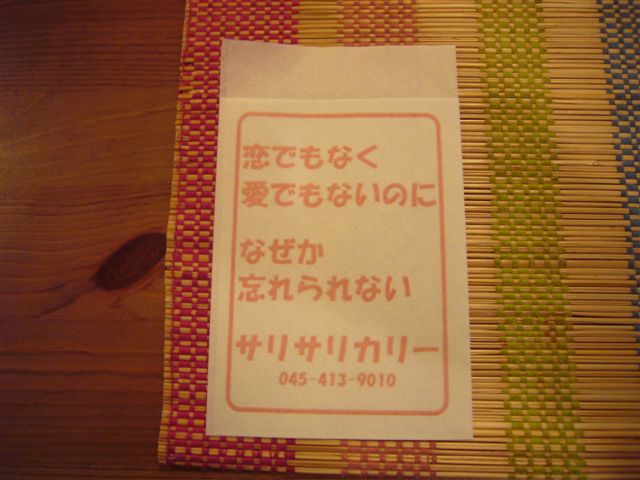 恋でもなく
愛でもないのに
なぜか
忘れられない
サリサリカリー
045-413-9010